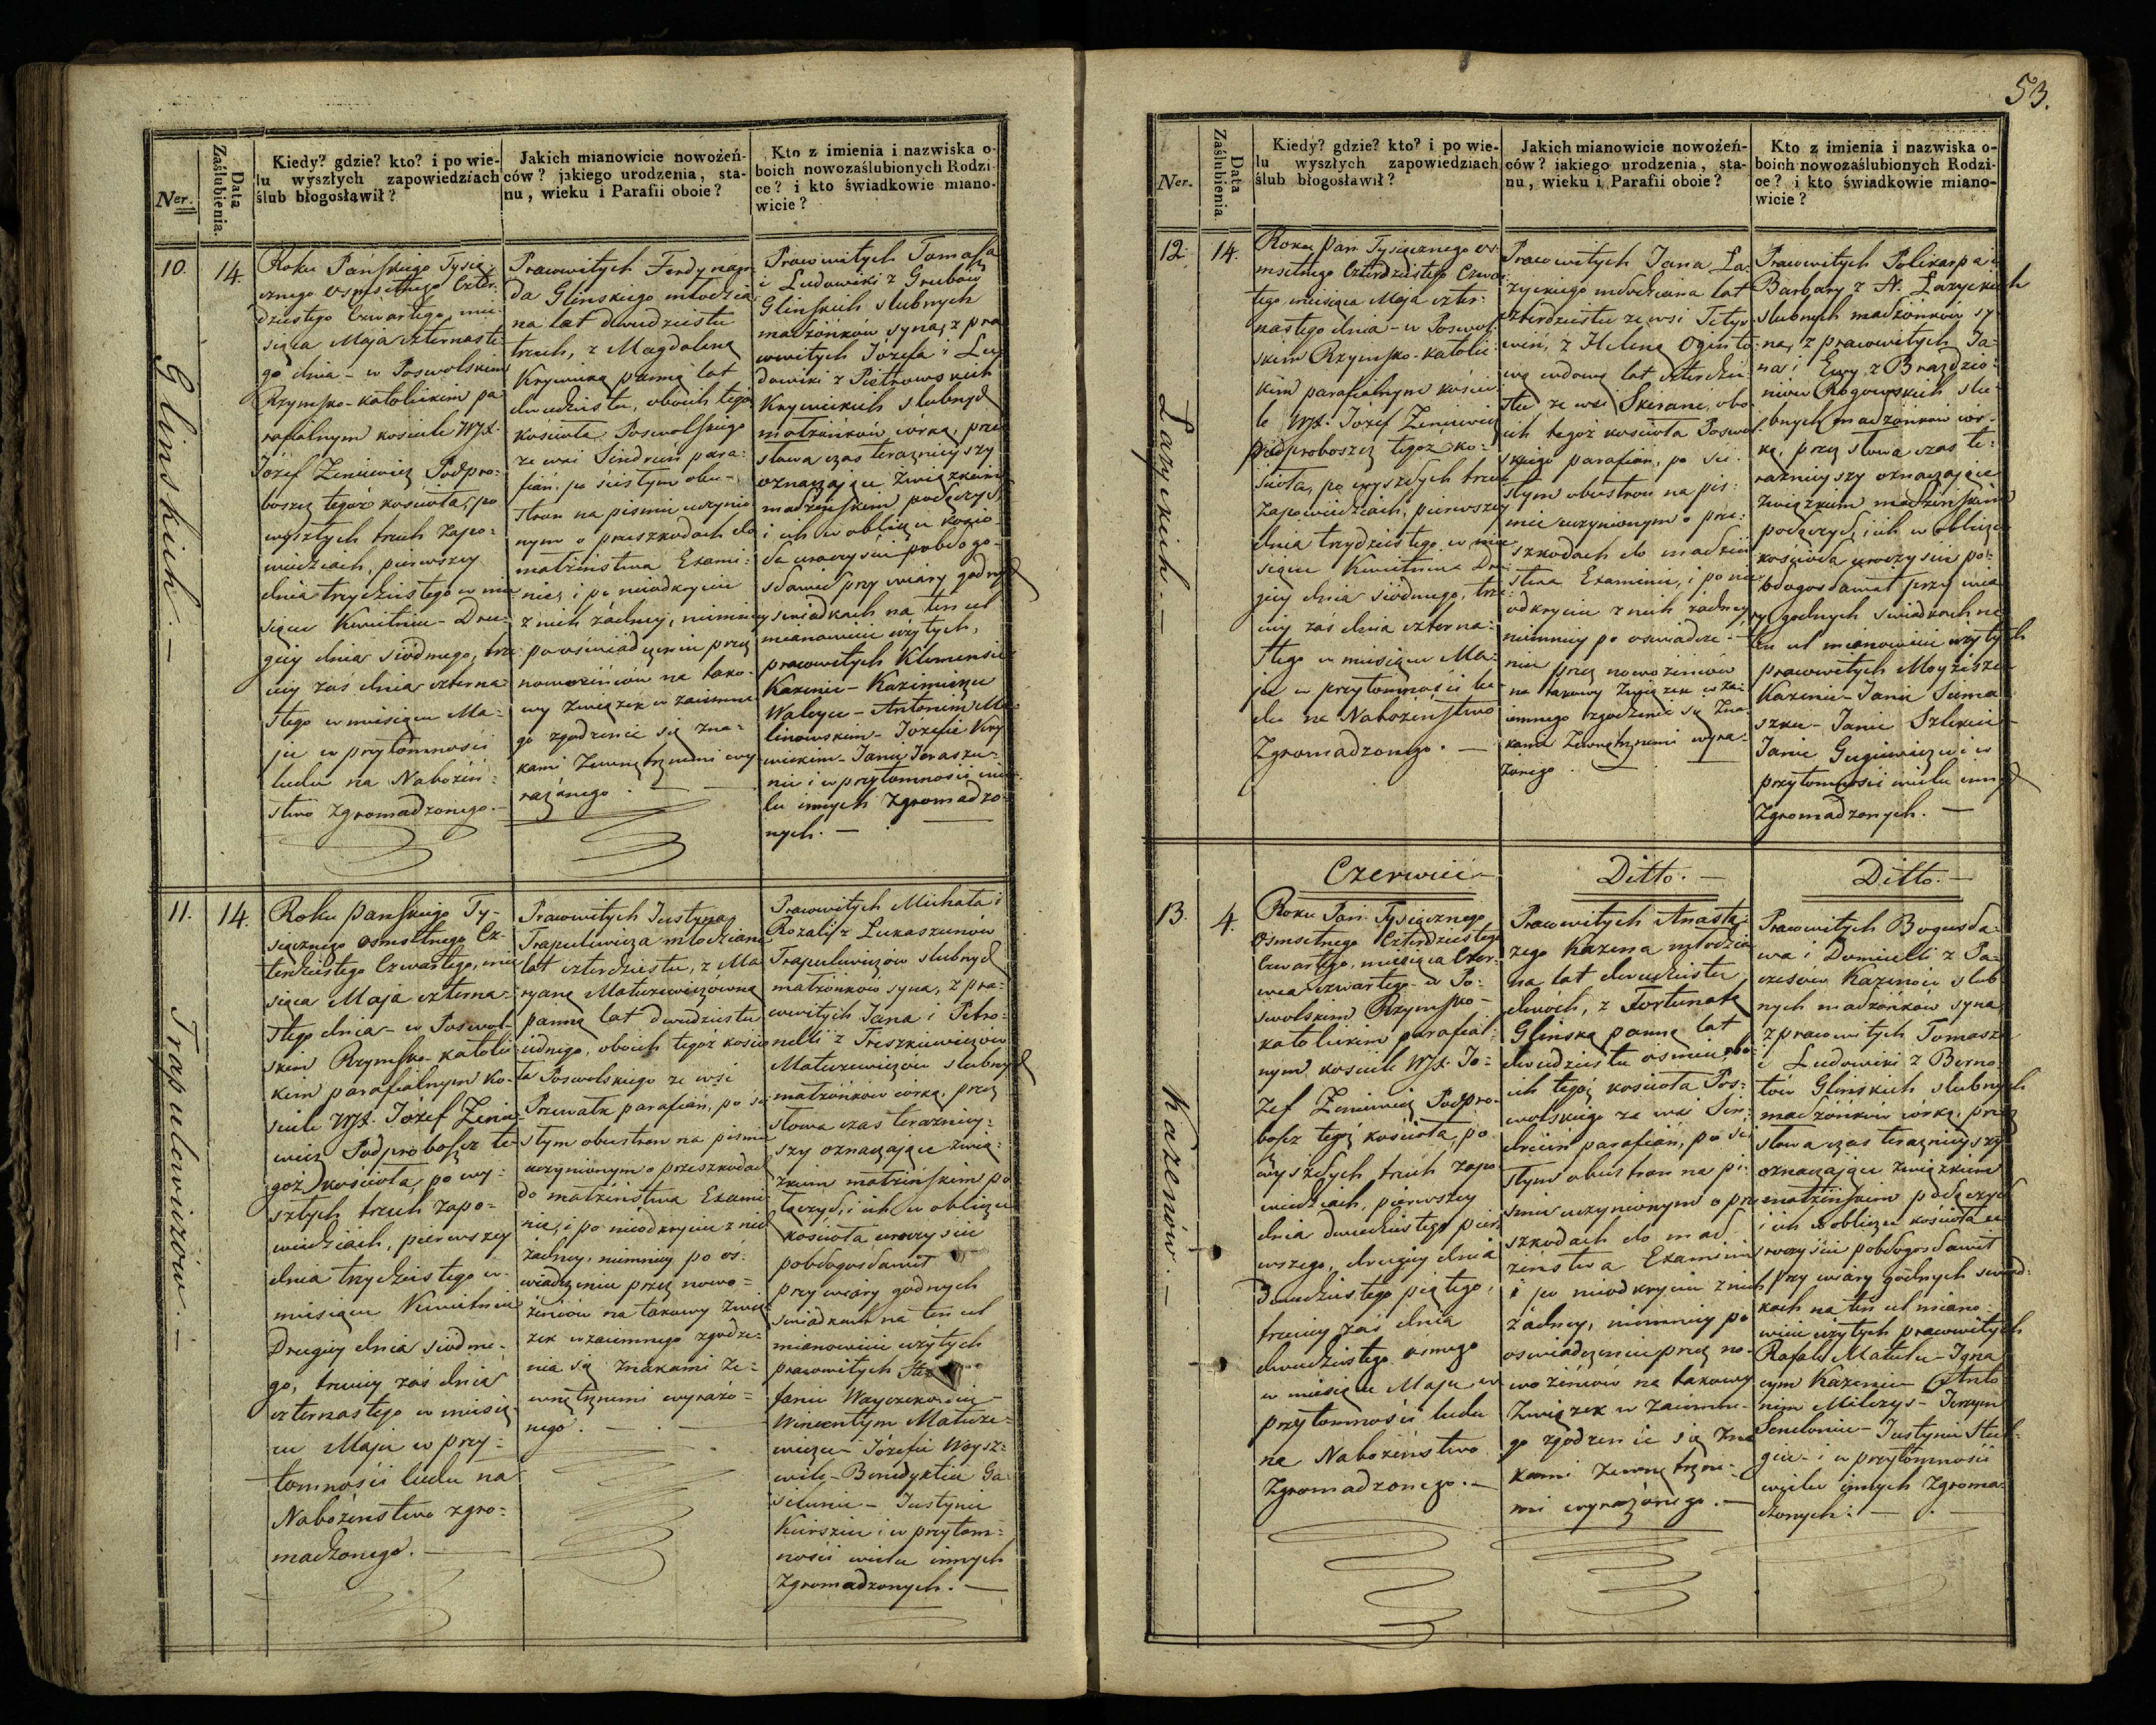 Ner.
Data
Zaślubienia.
Kiedy? gdzie? kto? i po wie-
lu wyszłych zapowiedziach
ślub błogosławił?
Jakich mianowicie nowożeń-
ców? jakiego urodzenia, sta-
nu, wieku i Parafii oboie?
Kto z imienia i nazwiska o-
boich nowozaślubionych Rodzi-
ce? i kto świadkowie miano-
wicie?
10.
Glinskich. —
14.
Roku Pańskiego Tysią-
cznego osmsetnego Czter-
dziestego Czwartego, mie-
siąca Maja czternaste-
go dnia - w Poswolskim
Rzymsko-katolickim pa-
rafialnym kosciele WJX.
Józef Zeniewicz Podpro-
boszcz tegoż koscioła, po
wyszłych trzech zapo-
wiedziach, pierwszey
dnia trzydziestego w mie-
siącu Kwietniu - Dru-
giey dnia siodmego, trze-
ciey zaś dnia czterna-
stego w miesiącu Ma-
ju w przytomności
ludu na Nabożeń-
stwo zgromadzonego. —
Pracowitych Ferdynan-
da Glinskiego młodzia-
na lat dwudziestu
trzech, z Magdaleną
Krywicką panną lat
dwudziestu, oboich tegoż
kościoła Poswolskiego
ze wsi Sindriuń para-
fian, po scisłym obu-
stron na pismie uczynio-
nym o przeszkodach do
małżeństwa Exami-
nie, i po nieodkryciu
z nich żadney, niemniey
po oświadczeniu przez
nowożeńców na tako-
wy związek wzaiemne-
go zgodzenie się zna-
kami zewnętrznemi wy-
rażonego. —
Pracowitych Tomasza
i Ludowiki z Grubów
Glinskich slubnych
małżonków syna, z pra-
cowitych Józefa i Lu-
dowiki z Pietrowskich
Krywickich slubnych
małżonków córką, przez
słowa czas teraznieyszy
oznaczające związkiem
małżeńskim połączył
i ich w obliczu kościo-
ła uroczyscie pobłogo-
sławił przy wiary godnych
swiadkach na ten cel
mianowicie użytych,
pracowitych Klemensie
Kazenie - Kazimierzu
Walcyu - Antonim Ma-
linowskim - Józefie Kry-
wickim - Janie Jerasza-
nie i w przytomności wie-
lu innych zgromadzo-
nych. —
11.
Trapulewiczów. —
14.
Roku pańskiego Ty-
siącznego osmsetnego Cz-
terdziestego Czwartego, mie-
siąca Maja czterna-
stego dnia - w Poswol-
skim Rzymsko-katolic-
kim parafialnym ko-
sciele WJX. Józef Zenie-
wicz Podproboszcz te-
goż kościoła, po wy-
szłych trzech zapo-
wiedziach, pierwszey
dnia trzydziestego w
miesiącu Kwietniu
Drugiey dnia siodme-
go, trzeciey zaś dnia
czternastego w miesią-
cu Maju w przy-
tomności ludu na
Nabożeństwo zgro-
madzonego. —
Pracowitych Justyna
Trapulewicza młodziana
lat czterdziestu, z Ma-
ryaną Matuzewiczówną
panną lat dwudziestu
iednego, oboich tegoż koscio-
ła Poswolskiego ze wsi
Przewałk parafian, po sci-
słym obustron na pismie
uczynionym o przeszkodach
do małżeństwa Exami-
nie, i po nieodkryciu z nich
żadney, niemniey po oś-
wiadczeniu przez nowo-
żeńców na takowy zwią-
zek wzaiemnego zgodze-
nia się znakami ze-
wnętrznemi wyrażo-
nego. —
Pracowitych Michała i
Rozalij z Lukaszunów
Trapulewiczów slubnych
małżonków syna, z pra-
cowitych Jana i Petro-
nelli z Treszkiewiczów
Matuzewiczów slubnych
małżonków córką, przez
słowa czas teraźniey-
szy oznaczające zwią-
zkiem małżeńskim po-
łączył, i ich w obliczu
kościoła uroczyscie
pobłogosławił
przy wiary godnych
swiadkach na ten cel
mianowicie użytych
pracowitych Ste-
fanie
Wincentym Matuze-
wiczu - Józefie Woysz-
wile - Benedykcie Ga-
siunie - Justynie
Kurszie i w przytom-
ności wielu innych
zgromadzonych. —
53.
Ner.
Data
Zaślubienia.
Kiedy? gdzie? kto? i po wie-
lu wyszłych zapowiedziach
ślub błogosławił?
Jakich mianowicie nowożeń-
ców? jakiego urodzenia, sta-
nu, wieku i Parafii oboie?
Kto z imienia i nazwiska o-
boich nowozaślubionych Rodzi-
ce? i kto świadkowie miano-
wicie?
12.
Łazyckich. —
14.
Roku Pań. Tysiącznego os-
msetnego Czterdziestego Czwar-
tego miesiąca Maja czter-
nastego dnia - w Poswol-
skim Rzymsko-katolic-
kim parafialnym koscie-
le WJX. Józef Zeniewicz
podproboszcz tegoż ko-
scioła, po wyszłych trzech
zapowiedziach, pierwszey
dnia trzydziestego w mie-
siącu Kwietniu Dru-
giey dnia siódmego, trze-
ciey zaś dnia czterna-
stego w miesiącu Ma-
ju w przytomności lu-
du na Nabożeństwo
Zgromadzonego. —
Pracowitych Jana Ła-
zyckiego młodziana lat
czterdziestu ze wsi Tetyr-
wiń, z Heleną Oginto-
wą wdową lat czterdzie-
stu ze wsi Skirane, obo-
ich tegoż kościoła Poswol-
skiego parafian, po sci-
słym obustron na pis-
mie uczynionym o prze-
szkodach do małżeń-
stwa Examinie, i po nie-
odkryciu z nich żadney
niemniey po oswiadcze-
niu przez nowożeńców
na takowy związek wzai-
emnego zgodzenie się zna-
kami zewnętrznemi wyra-
żonego. —
Pracowitych Polikarpa i
Barbary z N. Łazyckich
slubnych małżonków sy-
na, z pracowitych Ja-
na i Ewy z Brazdzio-
niów Rogowskich slu-
bnych małżonków cór-
ką, przez słowa czas te-
raznieyszy oznaczające
związkiem małżeńskim
połączył, i ich w obliczu
kościoła uroczyscie po-
błogosławił przy wia-
ry godnych swiadkach na
ten cel mianowicie użytych
pracowitych Moyżeszu
Kazenie - Janie Sima-
szku - Janie Szlekie -
Janie Gugiewiczu i w
przytomności wielu innych
Zgromadzonych. —
Czerwiec —
Ditto. —
Ditto. —
13.
Kazenów. —
4.
Roku Pań. Tysiącznego
Osmsetnego Czterdziestego
Czwartego, miesiąca Czer-
wca czwartego - w Po-
swolskim Rzymsko-
katolickim parafial-
nym kosciele WJX. Jó-
zef Zeniewicz Podpro-
boszcz tegoż kościoła, po
wyszłych trzech zapo-
wiedziach, pierwszey
dnia dwudziestego pier-
wszego, drugiey dnia
dwudziestego piątego,
trzeciey zaś dnia
dwudziestego osmego
w miesiącu Maju w
przytomności ludu
na Nabożeństwo
Zgromadzonego. —
Pracowitych Anasta-
zego Kazena młodzia-
na lat dwudziestu
dwóch, z Fortunatą
Glinską panną lat
dwudziestu osmiu, obo-
ich tegoż kościoła Pos-
wolskiego ze wsi Sin-
driuń parafian, po sci-
słym obustron na pi-
smie uczynionym o prze-
szkodach do mał-
żeństwa Examinie
i po nieodkryciu z nich
żadney, niemniey po
oswiadczeniu przez no-
wożeńców na takowy
związek wzaiemne-
go zgodzenie się zna-
kami zewnętrzne-
mi wyrażonego. —
Pracowitych Bogusła-
wa i Domicelli z Pa-
czesów Kazenów slub-
nych małżonków syna
z pracowitych Tomasza
i Ludowiki z Berno-
tów Glinskich slubnych
małżonków córką, przez
słowa czas teraznieyszy
oznaczające związkiem
małżeńskim połączył
i ich w obliczu kościoła u-
roczyscie pobłogosławił
przy wiary godnych swiad-
kach na ten cel miano-
wicie użytych pracowitych
Rafale Matule - Igna-
cym Kazenie - Anto-
nim Milczys - Jerzym
Senelonie - Justynie Stul-
giu - i w przytomności
wielu innych Zgroma-
dzonych. —